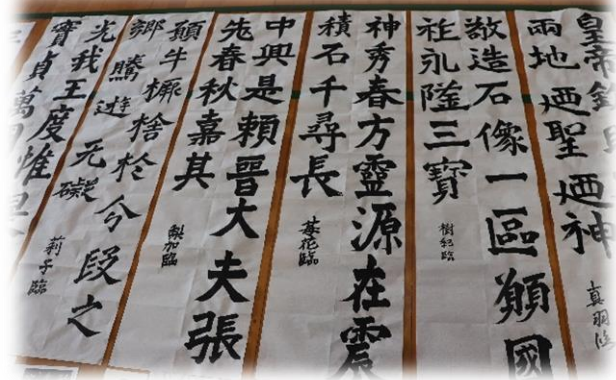 皇帝
兩地迺聖迺神
真羽臨
敬造石像一區願國
祚永隆三寶
樹紀臨
神秀春方靈源在震
積石千尋長
莓花臨
中興是賴晉大夫張
先春秋嘉其
梨加臨
願牛橛捨於分段之
鄉騰遊无礙
莉子臨
光我王度
寶貞萬
惟